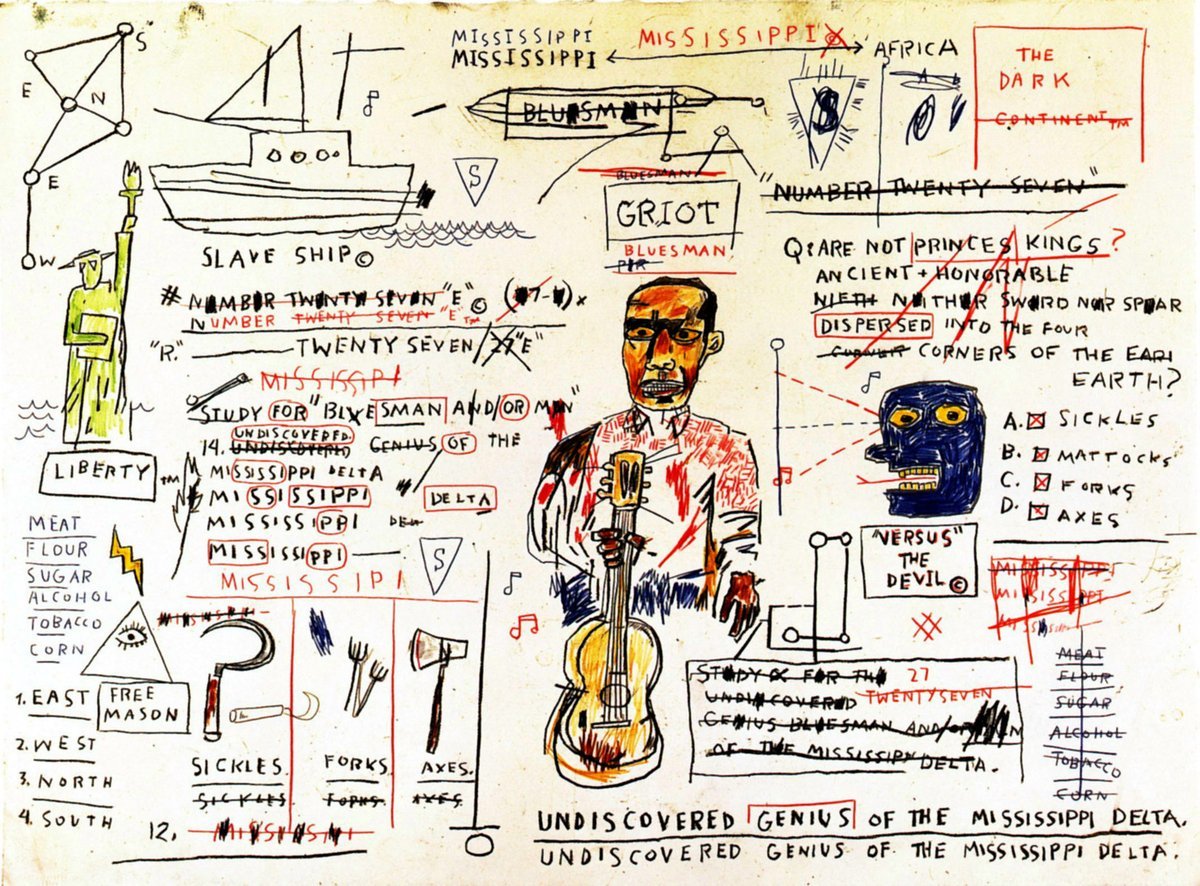 S
E
N
E
W
SLAVE SHIP©
MISSISSIPPI
MISSISSIPPI
MISSISSIPPI
AFRICA
THE
DARK
CONTINENT™
BLUESMAN
S
S
BLUESMAN
GRIOT
BLUESMAN
"NUMBER TWENTY SEVEN"
Q: ARE NOT PRINCES KINGS?
ANCIENT + HONORABLE
NEITHER SWORD NOR SPEAR
DISPERSED INTO THE FOUR
CORNER CORNERS OF THE EARI
EARTH?
A. SICKLES
B. MATTOCKS
C. FORKS
D. AXES
# NUMBER TWENTY SEVEN "E"©
NUMBER TWENTY SEVEN "E"™
"R." TWENTY SEVEN/27"E"
MISSISSIPI
STUDY FOR "BLUESMAN AND/OR MEN"
UNDISCOVERED
14. UNDISCOVERED GENIUS OF THE
MISSISSIPPI DELTA
MISSISSIPPI DELTA
MISSISSIPPI DEL
MISSISSIPPI
MISSISSIPI
S
LIBERTY™
MEAT
FLOUR
SUGAR
ALCOHOL
TOBACCO
CORN
FREE
MASON
1. EAST
2. WEST
3. NORTH
4. SOUTH
SICKLES.
FORKS.
AXES.
SICKLES.
FORKS.
AXES.
12.
"VERSUS"
THE
DEVIL©
STUDY FOR THE 27
UNDISCOVERED TWENTYSEVEN
GENIUS BLUESMAN AND/OR
OF THE MISSISSIPPI DELTA.
MISSISSIPPI
MISSISSIPPI
MEAT
FLOUR
SUGAR
ALCOHOL
TOBACCO
CORN
UNDISCOVERED GENIUS OF THE MISSISSIPPI DELTA.
UNDISCOVERED GENIUS OF THE MISSISSIPPI DELTA.